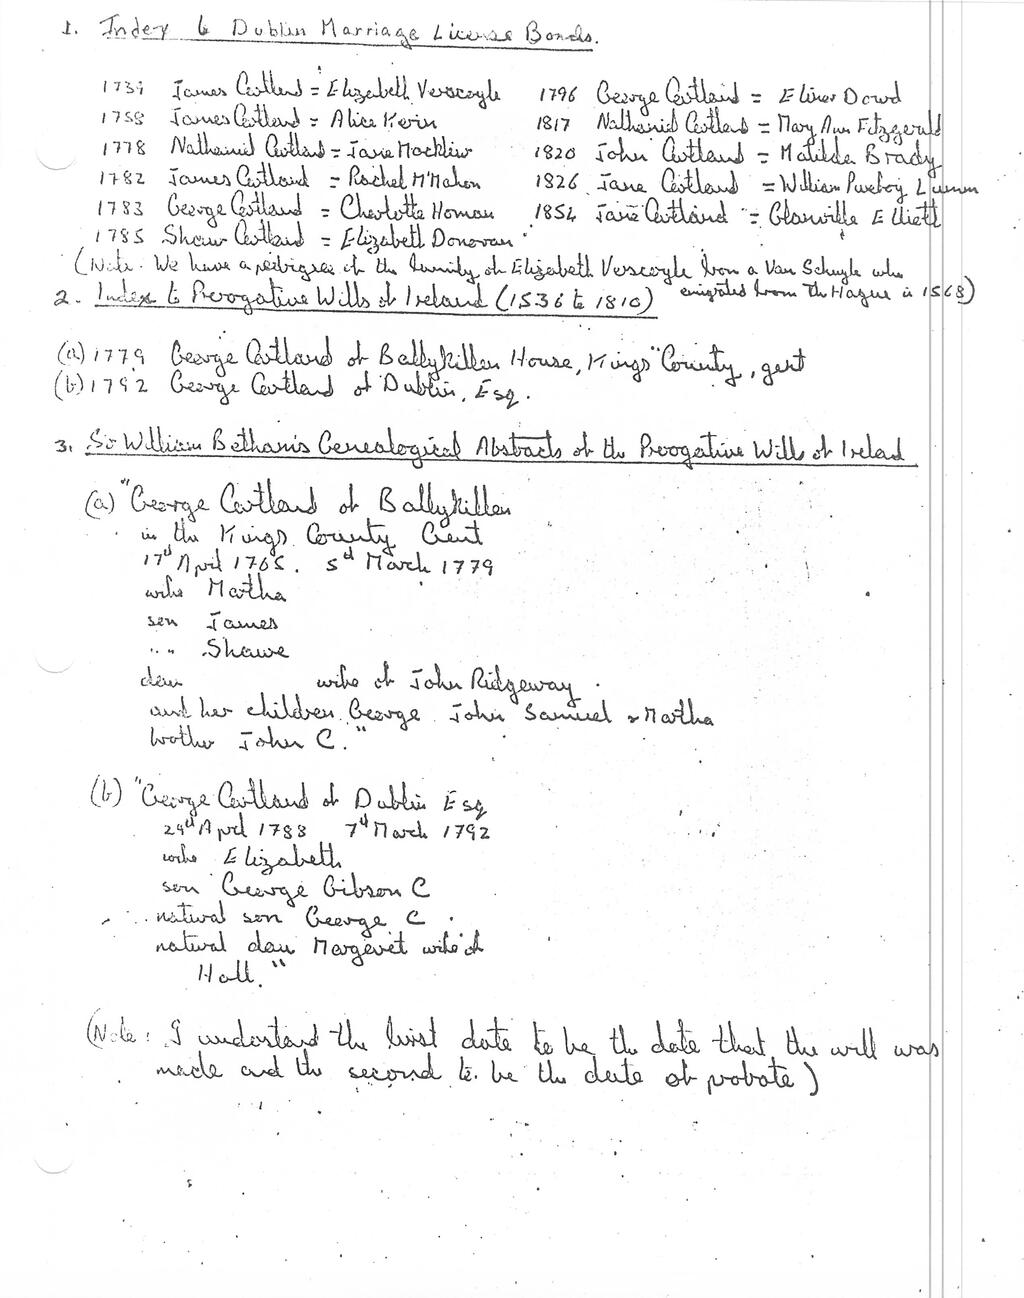 1. Index to Dublin Marriage License Bonds.
1739 James Cartland = Elizabeth Verscoyle
1758 James Cartland = Alice Kevin
1778 Nathaniel Cartland = Jane Mocklin
1782 James Cartland = Rachel McMahon
1783 George Cartland = Charlotte Homan
1785 Shaw Cartland = Elizabeth Donovan
1796 George Cartland = Elinor Dowd
1817 Nathaniel Cartland = Mary Ann Fitzgerald
1820 John Cartland = Matilda Brady
1826 Jane Cartland = William Purefoy
1854 Jane Cartland = Glanville Elliott
(Note: We have a pedigree of the family of Elizabeth Verscoyle from a Van Schuyle who
emigrated from The Hague in 1568)
2. Index to Prerogative Wills of Ireland (1536 to 1810)
(a) 1779 George Cartland of Ballykillen House, Kings County, gent
(b) 1792 George Cartland of Dublin, Esq.
3. Sir William Betham's Genealogical Abstracts of the Prerogative Wills of Ireland
(a) "George Cartland of Ballykillen
in the Kings County Gent
17th April 1765. 5th March 1779
wife Martha
son James
" " Shawe
dau wife of John Ridgeway.
and her children George John Samuel & Martha
brother John C."
(b) "George Cartland of Dublin Esq
29th April 1788 7th March 1792
wife Elizabeth
son George Gibson C
natural son George C.
natural dau Margaret wife of
Hall."
(Note: I understand the first date to be the date that the will was
made and the second to be the date of probate)